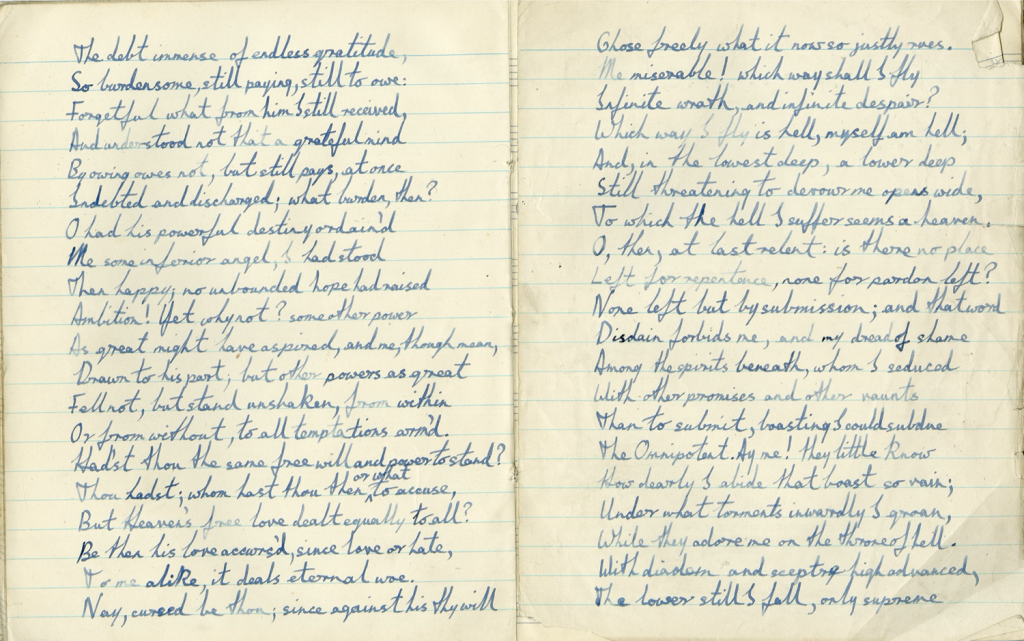 The debt immense of endless gratitude,
So burdensome, still paying, still to owe:
Forgetful what from him I still received,
And understood not that a grateful mind
By owing owes not, but still pays, at once
Indebted and discharged; what burden, then?
O had his powerful destiny ordain'd
Me some inferior angel, I had stood
Then happy; no unbounded hope had raised
Ambition! Yet why not? some other power
As great might have aspired, and me, though mean,
Drawn to his part; but other powers as great
Fell not, but stand unshaken, from within
Or from without, to all temptations arm'd.
Had'st thou the same free will and power to stand?
Thou hadst; whom hast thou then, or what to accuse,
But Heaven's free love dealt equally to all?
Be then his love accurs'd, since love or hate,
To me alike, it deals eternal woe.
Nay, cursed be thou; since against his thy will
Chose freely what it now so justly rues.
Me miserable! which way shall I fly
Infinite wrath, and infinite despair?
Which way I fly is hell, myself am hell;
And, in the lowest deep, a lower deep
Still threatening to devour me opens wide,
To which the hell I suffer seems a heaven.
O, then, at last relent: is there no place
Left for repentence, none for pardon left?
None left but by submission; and that word
Disdain forbids me, and my dread of shame
Among the spirits beneath, whom I seduced
With other promises and other vaunts
Than to submit, boasting I could subdue
The Omnipotent. Ay me! they little know
How dearly I abide that boast so vain;
Under what torments inwardly I groan,
While they adore me on the throne of hell.
With diadem and sceptre high advanced,
The lower still I fall, only supreme